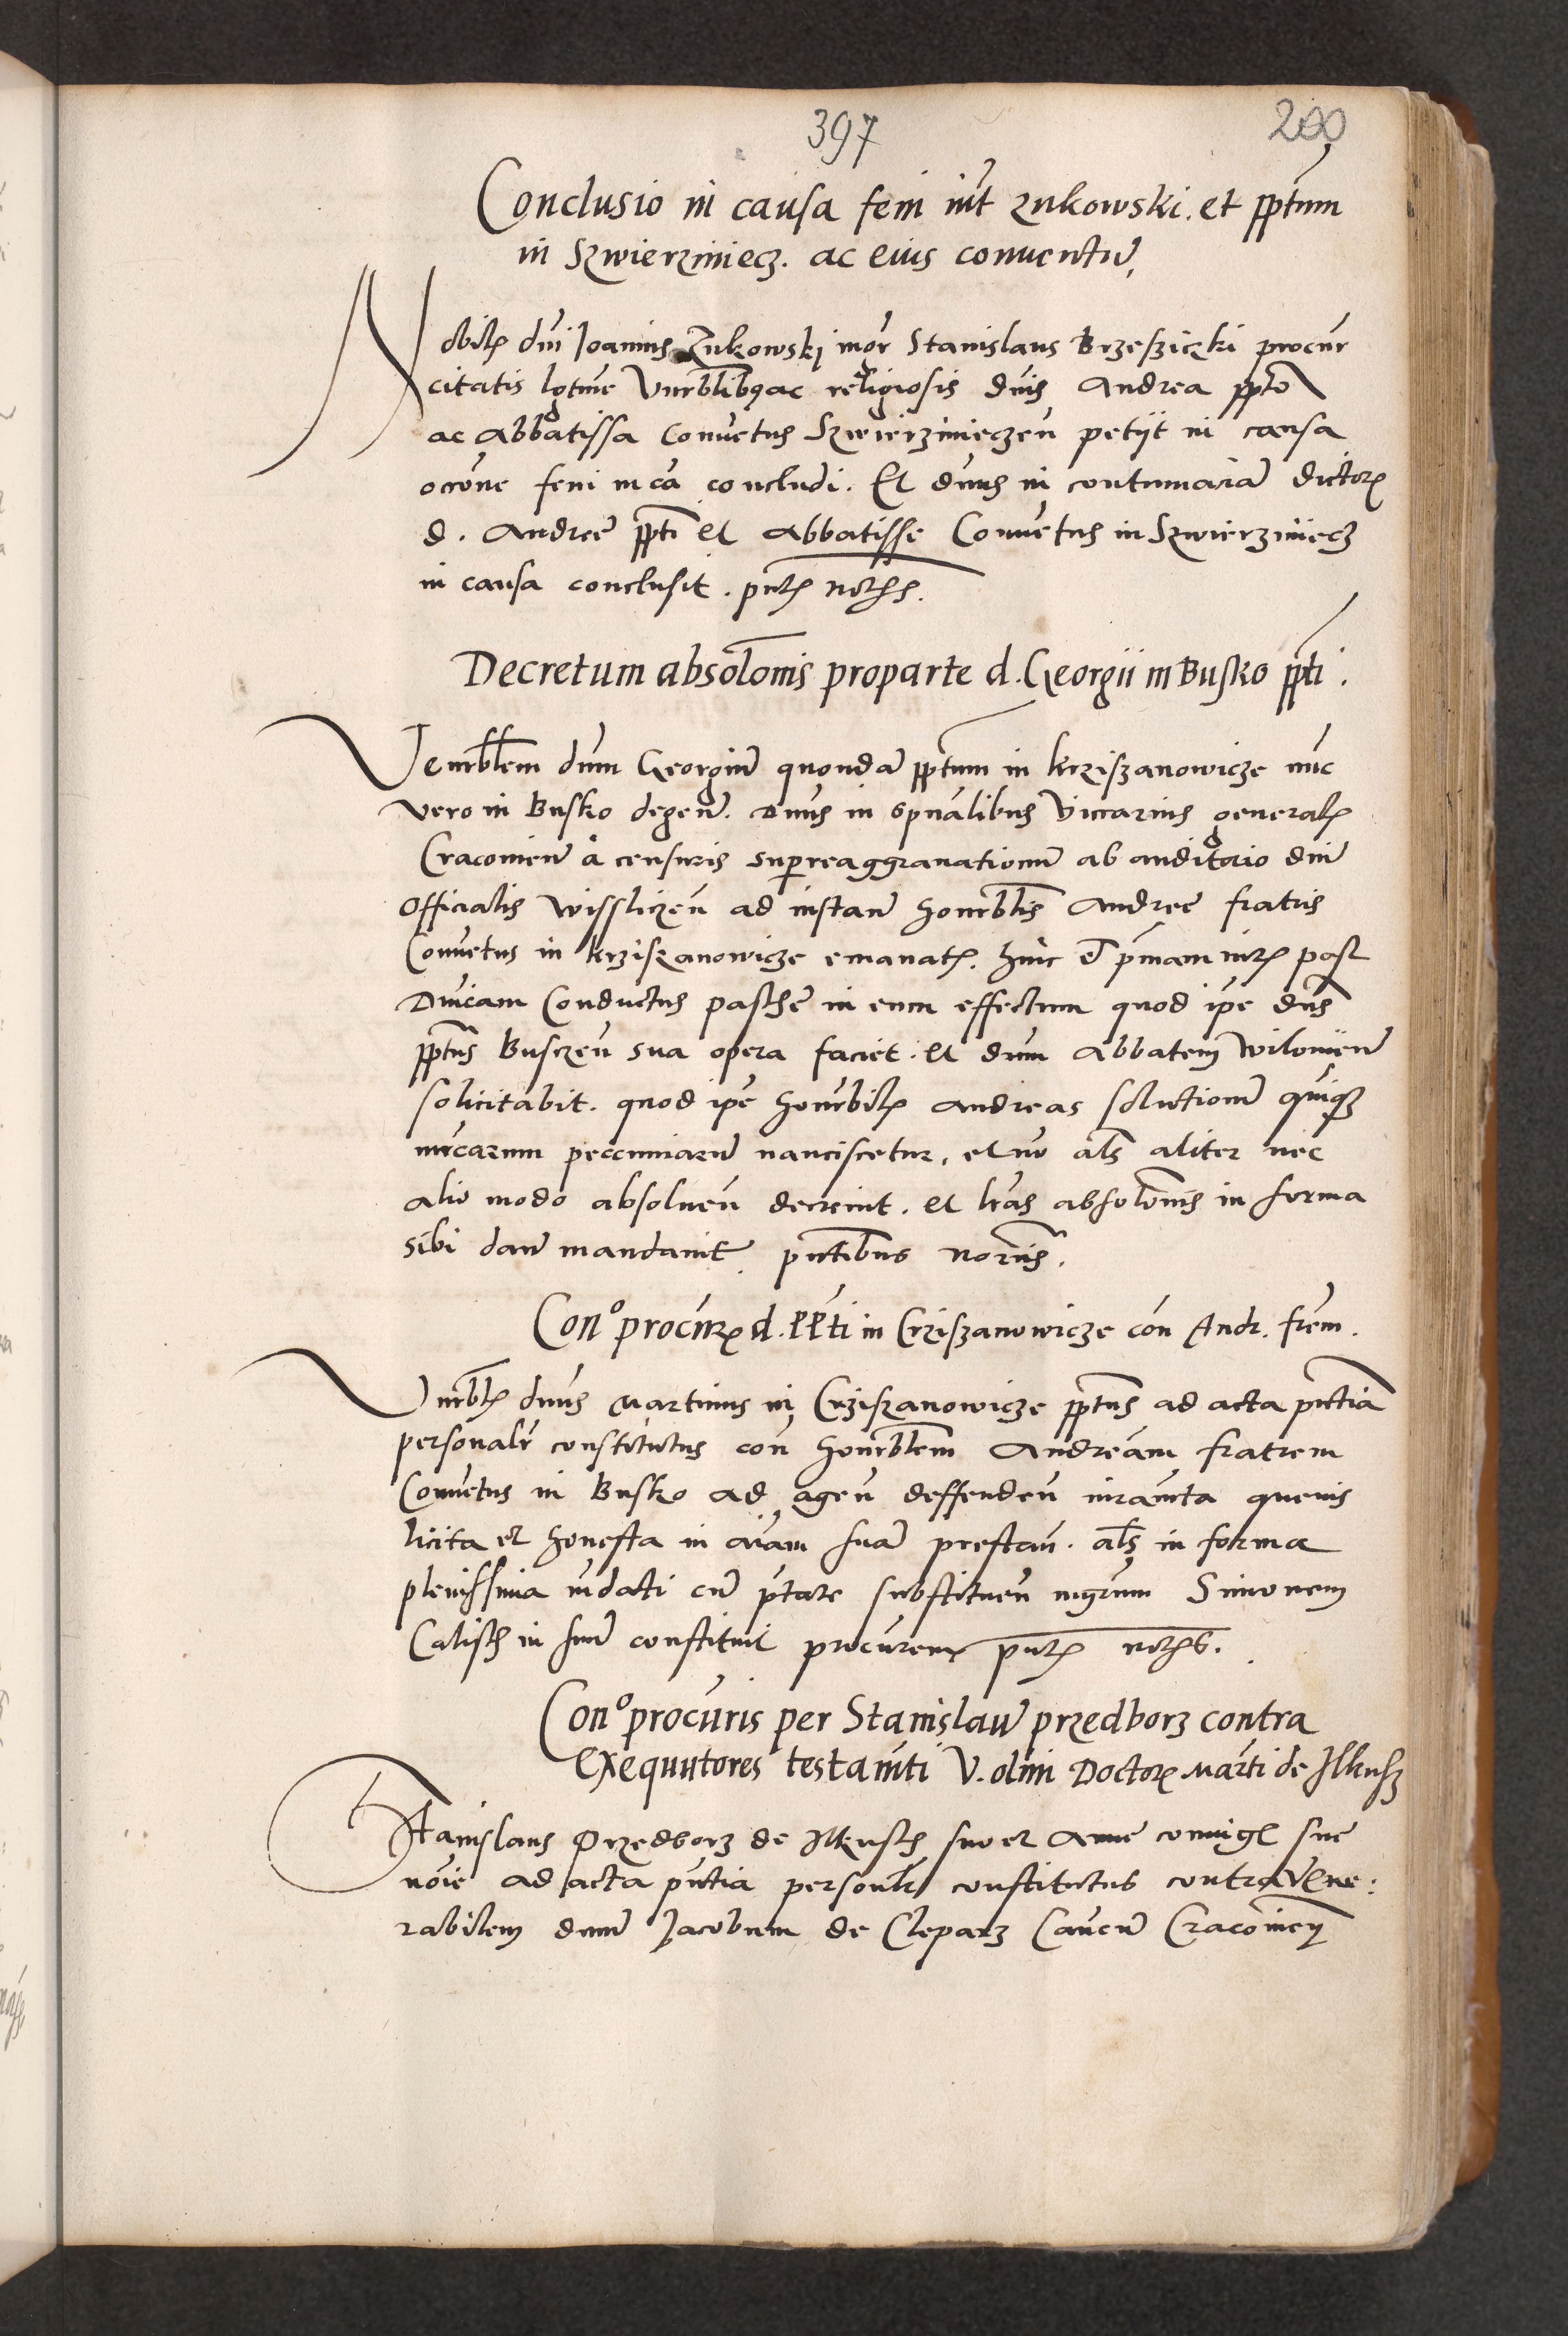 397
200
Conclusio in causa feni int Zukowski. et pptum
in Szwierziniecz. ac eius conuentu͂
Nobil̨ dn͂i Joannis Zukowski mg͂r Stanislaus Brzesziczki procur͂
citatis lg͂time Vnrblib9 ac religiosis dn͂is Andrea pp͂to
ac Abbatissa Conuetus Szwierziniecze͂n petijt in causa
occ͂one feni in ca͂ concludi. Et dn͂us in contumacia͂ dictor̨
d. Andree pp͂ti et Abbatisse Conue͂tus in Szwierziniecz
in causa conclusit. pn͂t̨
Decretum absolo͂nis pro parte d. Georgii in Busko pp͂ti.
Venrblem dn͂um Georgiu͂ quonda͂ pp͂tum in Krziszanowicze nu͂c
vero in Busko degen͂. Dn͂us in spua͂libus Viccarius general̨
Cracouien͂ à censuris superreaggrauationu͂ ab auditorio dn͂i
Officialis Wisslicze͂n ad instan͂ honrblis Andree fratris
Conue͂tus in Krziszanowicze emanat̨. hinc ad p͂mam iur̨ post
Dn͂icam Conductus pasche in eum effectum quod ip͂e dn͂s
pp͂tus Buscze͂n sua opera faciet. et dn͂um Abbatem Witouien͂
solicitabit. quod ip͂e honrbil̨ Andreas solutionem quinq3
mr͂carum peccuniaru͂ nanciscetur, et no͂ al͂s aliter nec
alio modo absoluen͂ decreuit. et lr͂as absolo͂nis in forma
sibi dari mandauit pn͂tibus nor͂iis.
Con° procur̨ d. PP͂ti in Crziszanowicze con͂ Andr. fr͂em.
Vnrbl̨ dn͂us Martinus in Crziszanowicze pp͂tus ad acta pn͂tia
personal͂r constitutus con͂ honrblem Andream fratrem
Conue͂tus in Busko ad agen͂ deffenden͂ iuram͂ta queuis
licita et honesta in ai͂am sua͂ prestan͂. al͂s in forma
plenissima m͂dati cu͂ p͂tate substituen͂ mgr͂um Simonem
Calisch in suu͂ constituit procur͂em pn͂t̨
Con° procur͂is per Stanislau͂ przedborz contra
Exequutores testam͂ti V. olim Doctor̨ Marti͂ de Ilkusz
Stanislaus Przedborz de Ilkusch suo et Anne coniugis sue
no͂ie ad acta pn͂tia personl͂r constitutus contra Vene:
rabilem dn͂um Jacobum de Cleparz Can͂cu͂ Cracouien͂